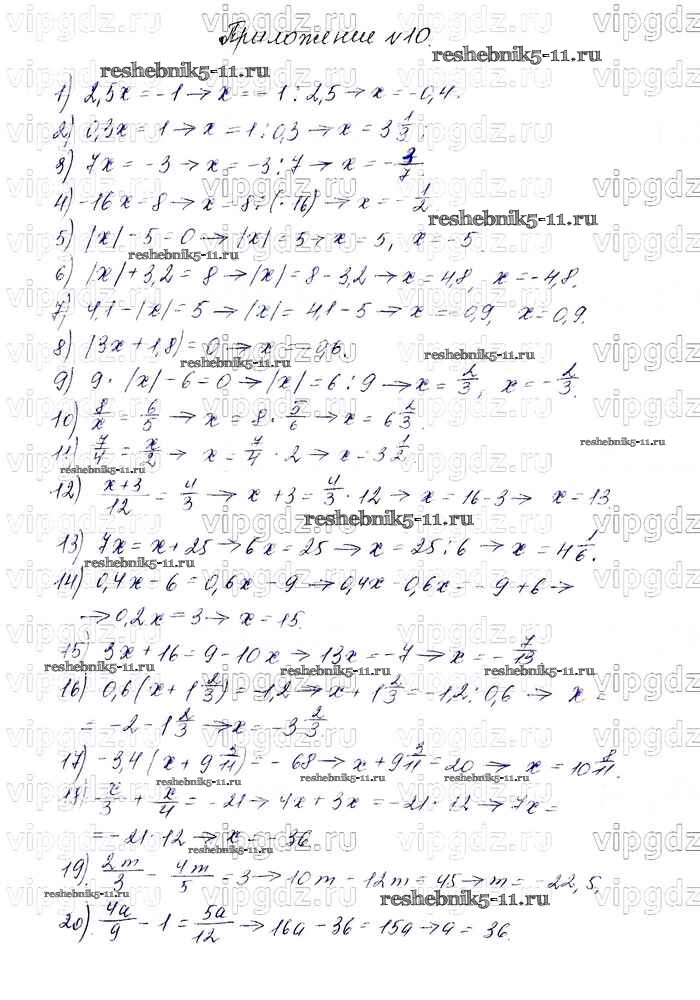 Приложение №10.
1) 2,5x = -1 → x = -1 : 2,5 → x = -0,4.
2) 0,3x = 1 → x = 1 : 0,3 → x = 3 1/3.
3) 7x = -3 → x = -3 : 7 → x = -3/7.
4) -16x = 8 → x = 8 : (-16) → x = -1/2
5) |x| - 5 = 0 → |x| = 5 → x = 5, x = -5.
6) |x| + 3,2 = 8 → |x| = 8 - 3,2 → x = 4,8, x = -4,8.
7) 4,1 - |x| = 5 → |x| = 4,1 - 5 → x = -0,9, x = 0,9.
8) |3x + 1,8| = 0 → x = -0,6.
9) 9 · |x| - 6 = 0 → |x| = 6 : 9 → x = 2/3, x = -2/3.
10) 8/x = 6/5 → x = 8 · 5/6 → x = 6 2/3.
11) 7/4 = x/2 → x = 7/4 · 2 → x = 3 1/2.
12) x+3/12 = 4/3 → x + 3 = 4/3 · 12 → x = 16 - 3 → x = 13
13) 7x = x + 25 → 6x = 25 → x = 25 : 6 → x = 4 1/6.
14) 0,4x - 6 = 0,6x - 9 → 0,4x - 0,6x = -9 + 6 →
→ 0,2x = 3 → x = 15.
15) 3x + 16 = 9 - 10x → 13x = -7 → x = -7/13
16) 0,6(x + 1 2/3) = -1,2 → x + 1 2/3 = -1,2 : 0,6 → x =
= -2 - 1 2/3 → x = -3 2/3
17) -3,4(x + 9 3/11) = -68 → x + 9 3/11 = 20 → x = 10 8/11.
18) x/3 + x/4 = -21 → 4x + 3x = -21 · 12 → 7x =
= -21 · 12 → x = -36
19) 2m/3 - 4m/5 = 3 → 10m - 12m = 45 → m = -22,5.
20) 4a/9 - 1 = 5a/12 → 16a - 36 = 15a → a = 36.
vipgdz.ru
reshebnik5-11.ru